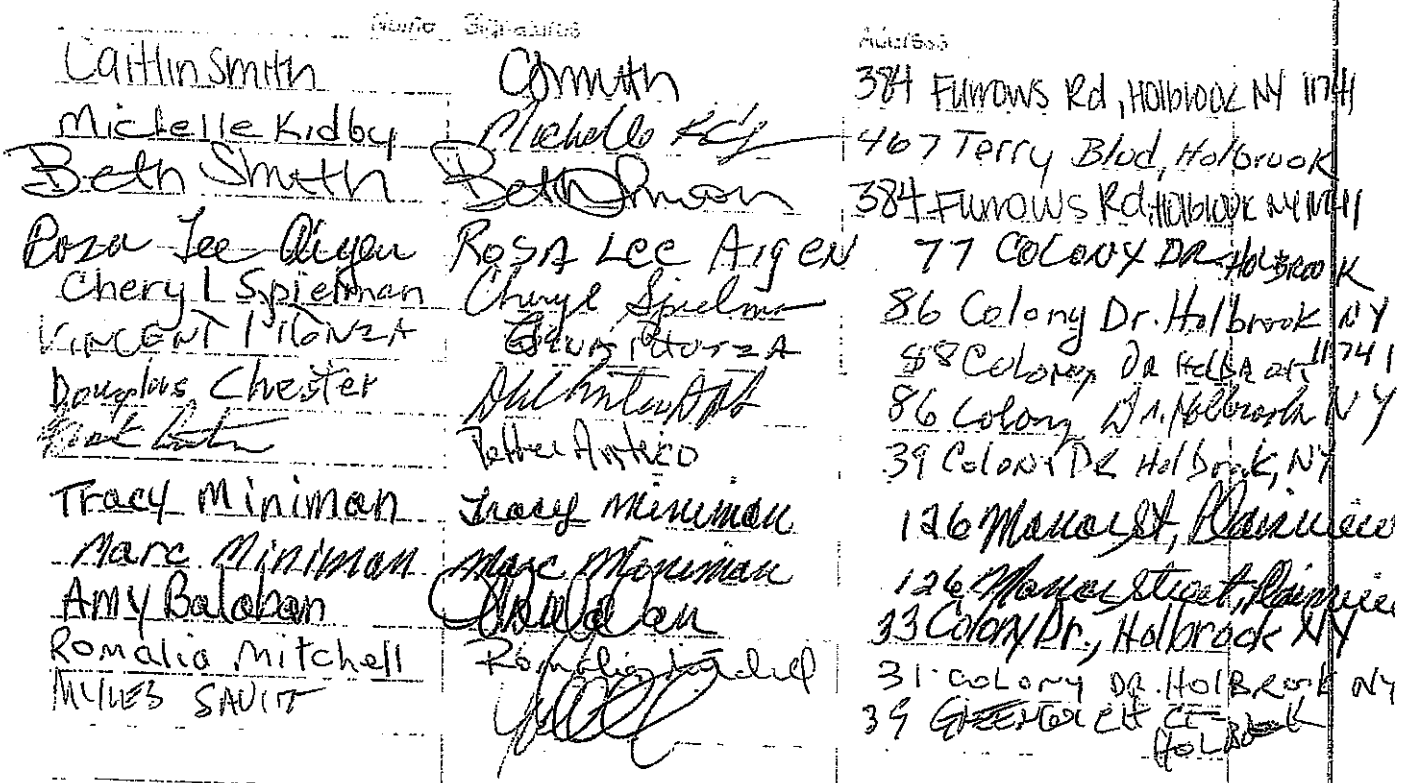 Name Signatures Address
Caitlin Smith CSmith 384 Furrows Rd, Holbrook NY 11741
Michelle Kidby Michelle 467 Terry Blvd, Holbrook
Beth Smith Beth 384 Furrows Rd, Holbrook NY 11741
Rosa Lee Aigen ROSA Lee AIgEN 77 COLONY DR HOLBROOK
Cheryl Spielman Cheryl Spielman 86 Colony Dr. Holbrook NY
VINCENT 88 Colony DR Holbrook 11741
Douglas Chester 86 Colony Dr. Holbrook NY
39 Colony DR Holbrook, NY
Tracy Miniman Tracy Miniman 126 Manor St, Plainview
Marc Miniman Marc Miniman 126 Manor Street, Plainview
Amy Balaban 33 Colony Dr., Holbrook NY
Romalia Mitchell Romalia Mitchell 31 Colony DR. HolBRook NY
SAVITT 39 CT HOLBROOK